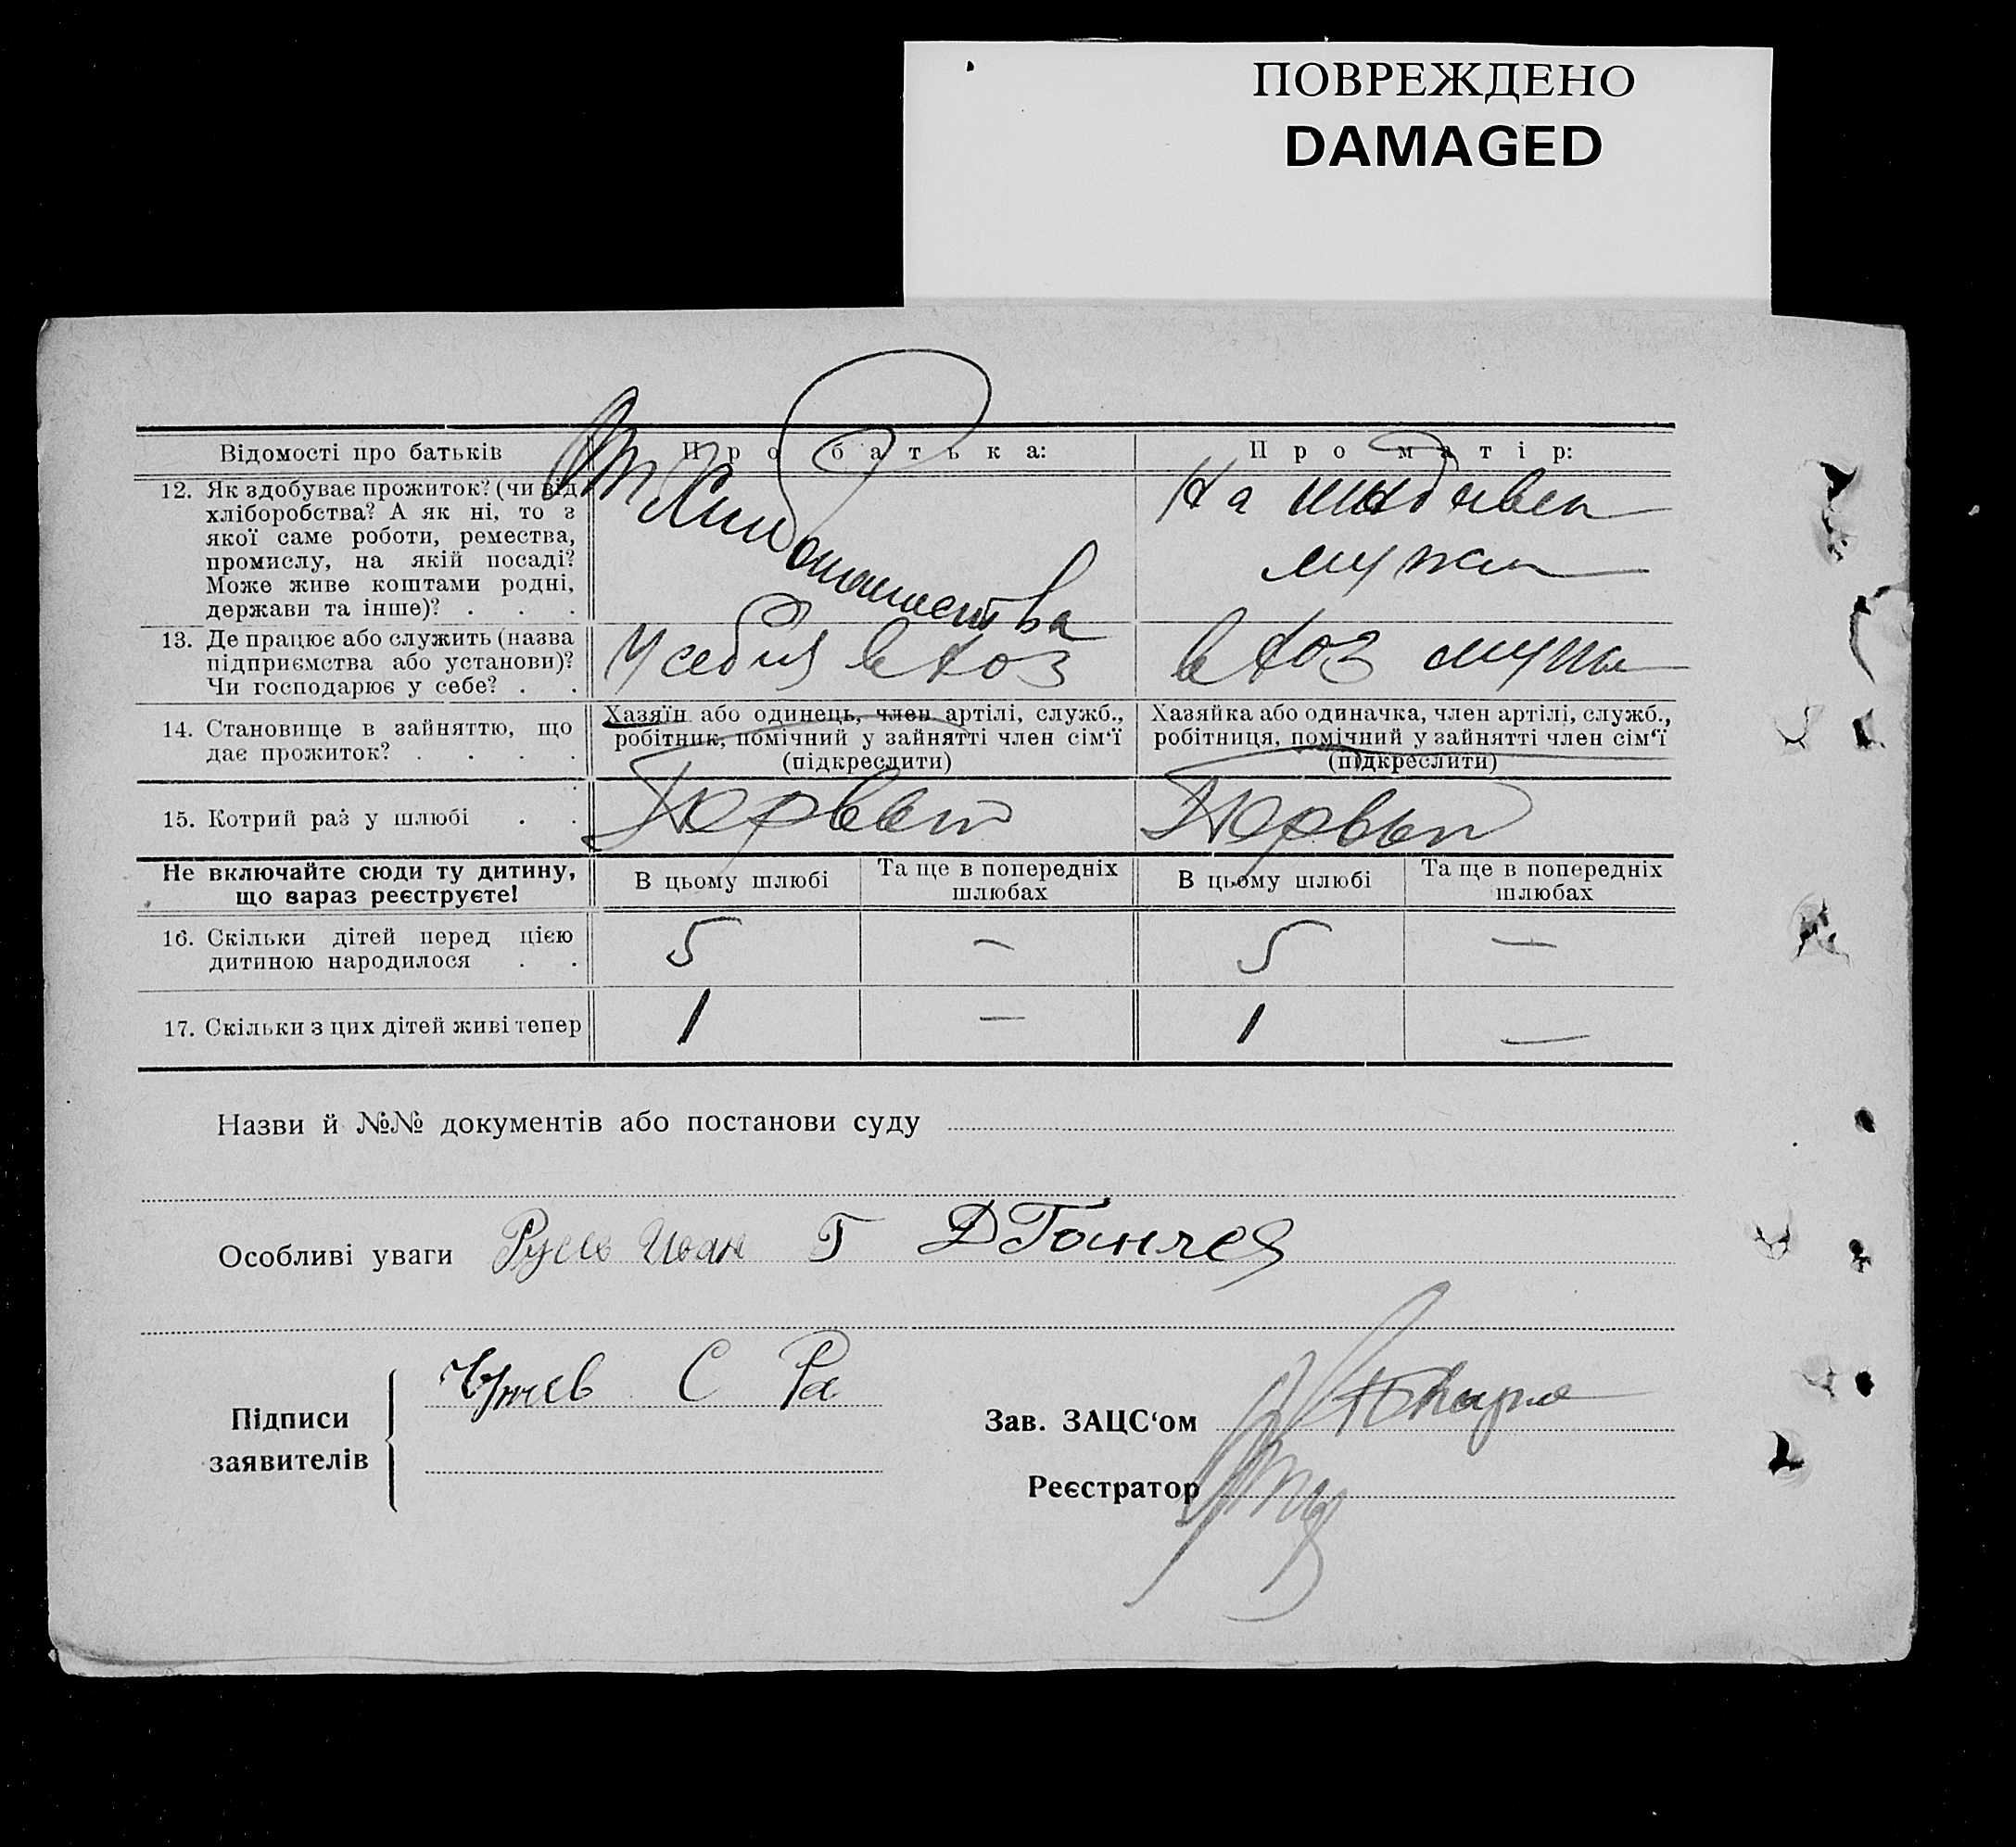 ПОВРЕЖДЕНО
DAMAGED
Відомості про батьків
Про батька:
Про матір:
12. Як здобуває прожиток? (чи від
хліборобства? А як ні, то з
якої саме роботи, ремества,
промислу, на якій посаді?
Може живе коштами родні,
держави та інше)? . . .
От Хлибопашества
На иждивен
мужа
13. Де працює або служить (назва
підприємства або установи)?
Чи господарює у себе? . .
У себя в хоз
в хоз мужа
14. Становище в зайняттю, що
дає прожиток? . . . .
Хазяїн або одинець, член артілі, служб.,
робітник, помічний у зайнятті член сім'ї
(підкреслити)
Хазяйка або одиначка, член артілі, служб.,
робітниця, помічний у зайнятті член сім'ї
(підкреслити)
15. Котрий раз у шлюбі . .
Первый
Первый
Не включайте сюди ту дитину,
що зараз реєструєте!
В цьому шлюбі
Та ще в попередніх
шлюбах
В цьому шлюбі
Та ще в попередніх
шлюбах
16. Скільки дітей перед цією
дитиною народилося . .
5 — 5 —
17. Скільки з цих дітей живі тепер
1 — 1 —
Назви й №№ документів або постанови суду
Особливі уваги Иван Г
Підписи
заявителів
С Ра
Зав. ЗАЦС'ом
Реєстратор